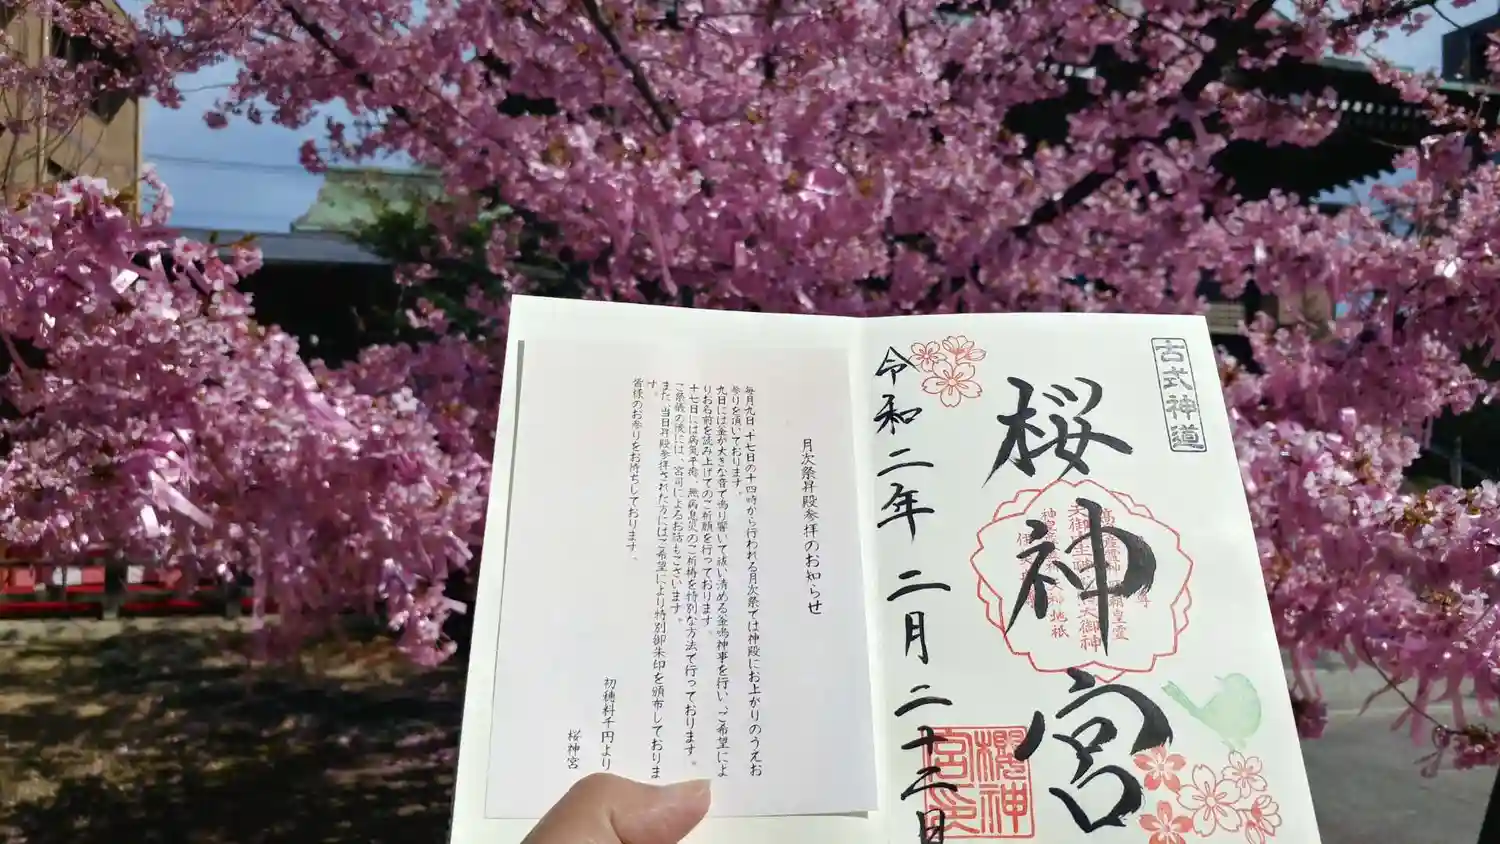 古式神道
桜神宮
令和二年二月二十三日
櫻神
宮印
月次祭昇殿参拝のお知らせ
毎月九日、十七日の十四時から行われる月次祭では神殿にお上がりのうえお
参りを頂いております。
九日には釜が大きな音で鳴り響いて祓い清める釜鳴神事を行い、ご希望によ
りお名前を読み上げてのご祈願を行っております。
十七日には病気平癒、無病息災のご祈祷を特別な方法で行っております。
ご祭儀の後には、宮司によるお話もございます。
また、当日昇殿参拝された方にはご希望により特別御朱印を頒布しておりま
す。
皆様のお参りをお待ちしております。
初穂料千円より
桜神宮